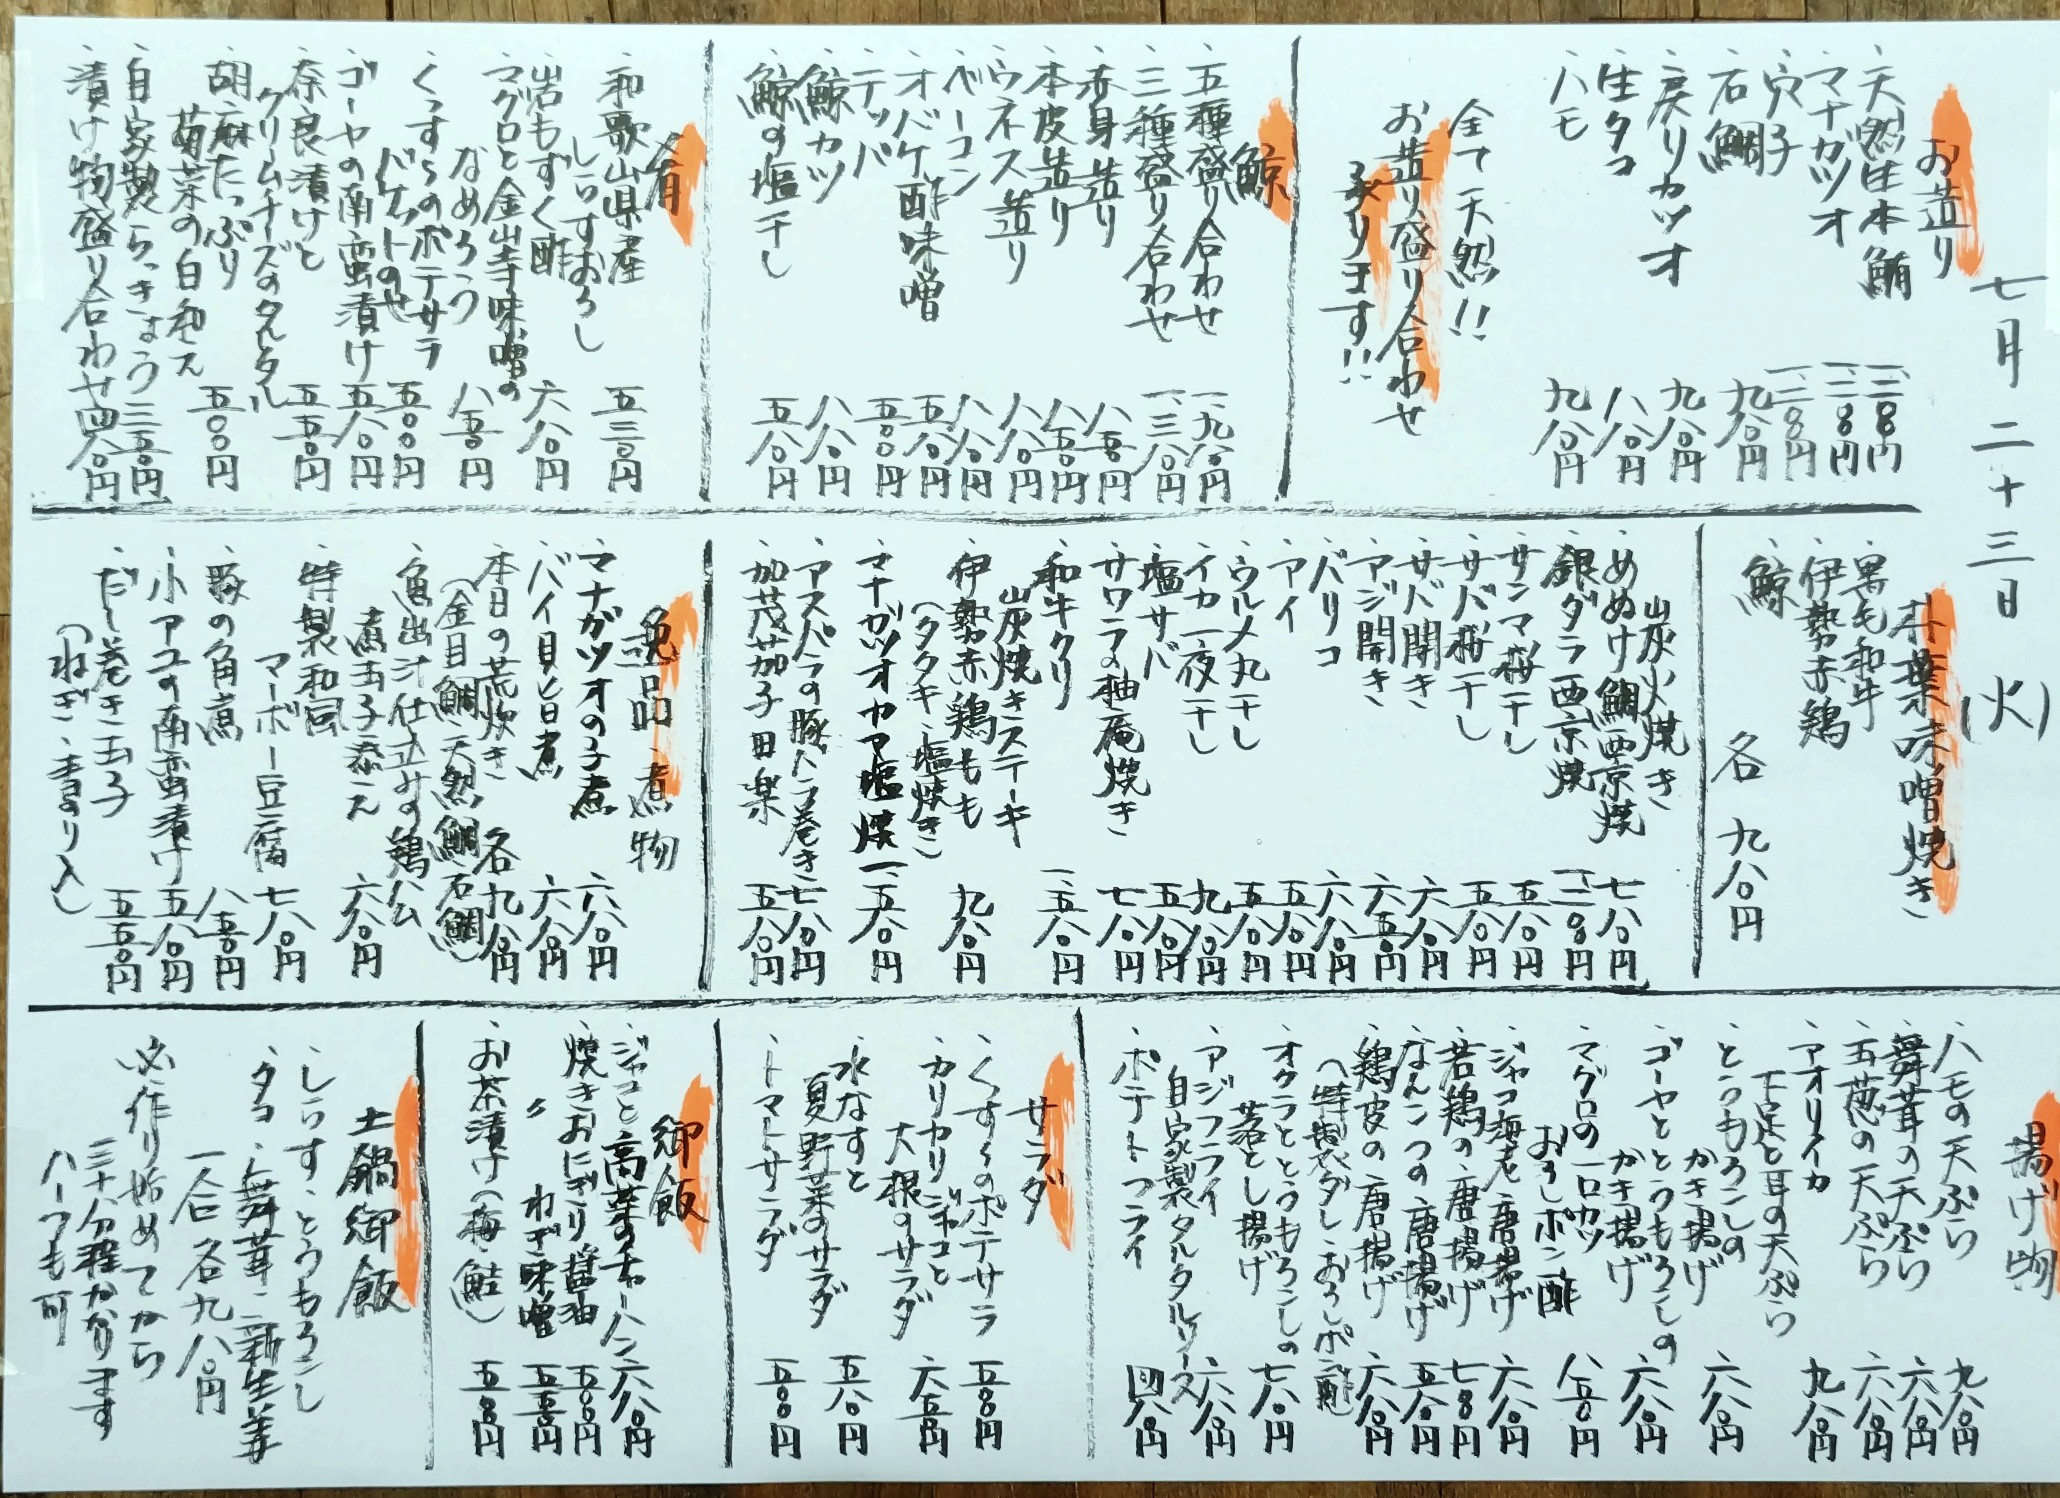 七月二十三日(火)
お造り
、天然生本鮪 一、二八〇円
、マナガツオ 一、二八〇円
、穴子 一、二八〇円
、石鯛 九八〇円
、戻りカツオ 九八〇円
、生タコ 八八〇円
、ハモ 九八〇円
全て天然!!
お造り盛り合わせ
承ります!!
鯨
、五種盛り合わせ 一、九八〇円
、三種盛り合わせ 一、三八〇円
、赤身造り 八五〇円
、本皮造り 八五〇円
、ウネス造り 八八〇円
、ベーコン 八八〇円
、オバケ酢味噌 五八〇円
、テッパ 五〇〇円
、鯨カツ 八八〇円
、鯨の塩干し 五八〇円
肴
、和歌山県産
しらすおろし 五三〇円
、岩もずく酢 六八〇円
、マグロと金山寺味噌の
なめろう 八五〇円
、くずし々のポテサラ
バケットのせ 五〇〇円
、ゴーヤの南蛮漬け 五八〇円
、奈良漬けと
クリームチーズのタルタル 五五〇円
、胡麻たっぷり
菊菜の白和え 五〇〇円
、自家製らっきょう 三五〇円
、漬け物盛り合わせ 四八〇円
朴葉味噌焼き
、黒毛和牛
、伊勢赤鶏
、鯨
各 九八〇円
炭火焼き
、めぬけ鯛西京焼 七八〇円
、銀ダラ西京焼 一、二八〇円
、サンマ梅干し 五八〇円
、サバ梅干し 五八〇円
、サバ開き 六八〇円
、アジ開き 六五〇円
、バリコ 六八〇円
、アイ 五八〇円
、ウルメ丸干し 五五〇円
、イカ一夜干し 九八〇円
、塩サバ 五八〇円
、サワラの柚庵焼き 七八〇円
、和牛クリ
炭焼きステーキ 一、五八〇円
、伊勢赤鶏もも
(タタキ、塩焼き) 九八〇円
、マナガツオカマ塩焼 一、五八〇円
、アスパラの豚バラ巻き 七八〇円
、加茂茄子田楽 五八〇円
逸品、煮物
、マナガツオの子煮 六八〇円
、バイ貝旨煮 六八〇円
、本日の荒炊き 各九八〇円
(金目鯛、天然鯛、石鯛)
、魚出汁仕立みの鶏公
煮玉子添え 六八〇円
、特製和風
マーボー豆腐 七八〇円
、豚の角煮 八五〇円
、小アユの南蛮漬け 五八〇円
、だし巻き玉子 五五〇円
(ねぎ、青のり入)
揚げ物
、ハモの天ぷら 九八〇円
、舞茸の天ぷら 六八〇円
、玉葱の天ぷら 六八〇円
、アオリイカ
下足と耳の天ぷら 九八〇円
、とうもろこしの
かき揚げ 六八〇円
、ゴーヤととうもろこしの
かき揚げ 六八〇円
、マグロの一口カツ
おろしポン酢 八五〇円
、ジャコ海老唐揚げ 六八〇円
、若鶏の唐揚げ 七八〇円
、なんこつの唐揚げ 五八〇円
、鶏皮の唐揚げ 六八〇円
(特製ダレ、おろしポン酢)
、オクラととうもろこしの
落とし揚げ 七八〇円
、アジフライ
自家製タルタルソース 六八〇円
、ポテトフライ 四八〇円
サラダ
、くずし々のポテサラ 五〇〇円
、カリカリジャコと
大根のサラダ 六五〇円
、水なすと
夏野菜のサラダ 五八〇円
、トマトサラダ 五〇〇円
御飯
、ジャコと高菜のチャーハン 六八〇円
、焼きおにぎり醤油 五〇〇円
、〃 ねぎ味噌 五五〇円
、お茶漬け(梅、鮭) 五〇〇円
土鍋御飯
、しらす、とうもろこし
、タコ、舞茸、新生姜
一合 各九八〇円
必、作り始めてから
三十分程かかります
ハーフも可